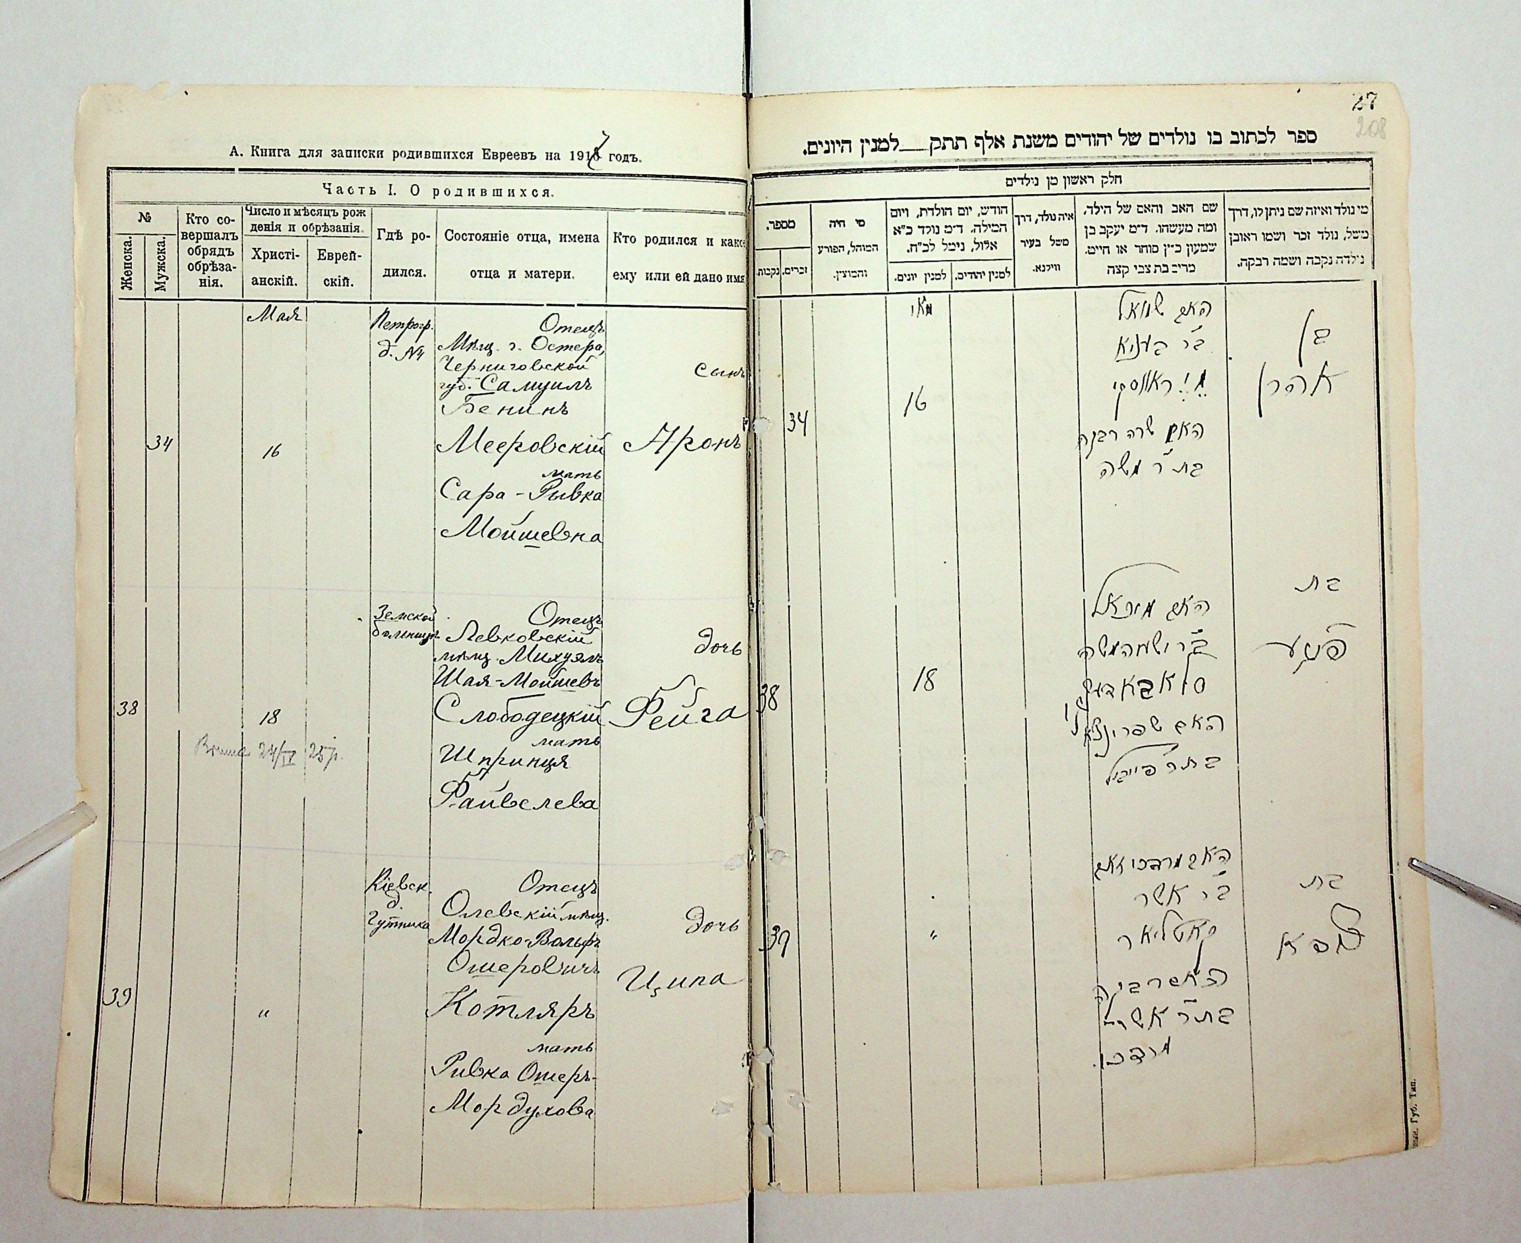 А. Книга для записки родившихся Евреевъ на 1917 годъ.
Часть I. О родившихся.
№
Женска.
Мужска.
Кто со-
вершалъ
обрядъ
обрѣза-
нія.
Число и мѣсяцъ рож
денія и обрѣзанія.
Христі-
анскій.
Еврей-
скій.
Гдѣ ро-
дился.
Состояніе отца, имена
отца и матери.
Кто родился и како
ему или ей дано имя
34
Мая
16
Петрогр.
д. №
Отецъ
Мѣщ. г. Остера,
Черниговской
губ. Самуилъ
Бенинъ
Мееровскій
мать
Сара-Рывка
Мойшевна
сынъ
Аронъ
38
18
24/IV 25 р.
Земской
больницѣ
Отецъ
Левковскій
мѣщ. Михуэль
Шая-Мойшевъ
Слободецкій
мать
Шпринця
Файвелева
дочь
Фейга
39
"
Кіевск.
д.
Гутника
Отецъ
Олевскій мѣщ.
Мордко-Вольфъ
Ошеровичъ
Котляръ
мать
Ривка Ошеръ-
Мордухова
дочь
Ципа
27
208
ספר לכתוב בו נולדים של יהודים משנת אלף תתק__למנין היונים.
חלק ראשון מן נילדים
מספר.
נקבות.
זכרים.
מי היה
המוהל, הפורע
והמוצץ.
חודש, יום הולדת, ויום
המילה. ד״מ נולד כ״א
אלול, נימל לכ״ח.
למנין יונים.
למנין יהודים.
איה נולד, דרך
משל בעיר
ווילנא.
שם האב והאם של הילד,
ומה מעשהו. ד״מ יעקב בן
שמעון כ״ץ סוחר או חייט.
מרים בת צבי קצה
מי נולד ואיזה שם ניתן לו, דרך
משל, נולד זכר ושמו ראובן
נילדה נקבה ושמה רבקה.
34
מאי
16
האב שמואל
בר בעניא
האם שרה רבקה
בת ר משה
בן
אהרן
38
18
האב מיכאל
בר ישעה משה
סלאבאדעצקי
האם שפרינצא
בת ר פייביל
בת
פייגע
39
"
האב מרדכי זאב
בר אשר
קאטליאר
האם רבקה
בת ר אשר
מרדכי.
בת
ציפא
Губ. Тип.